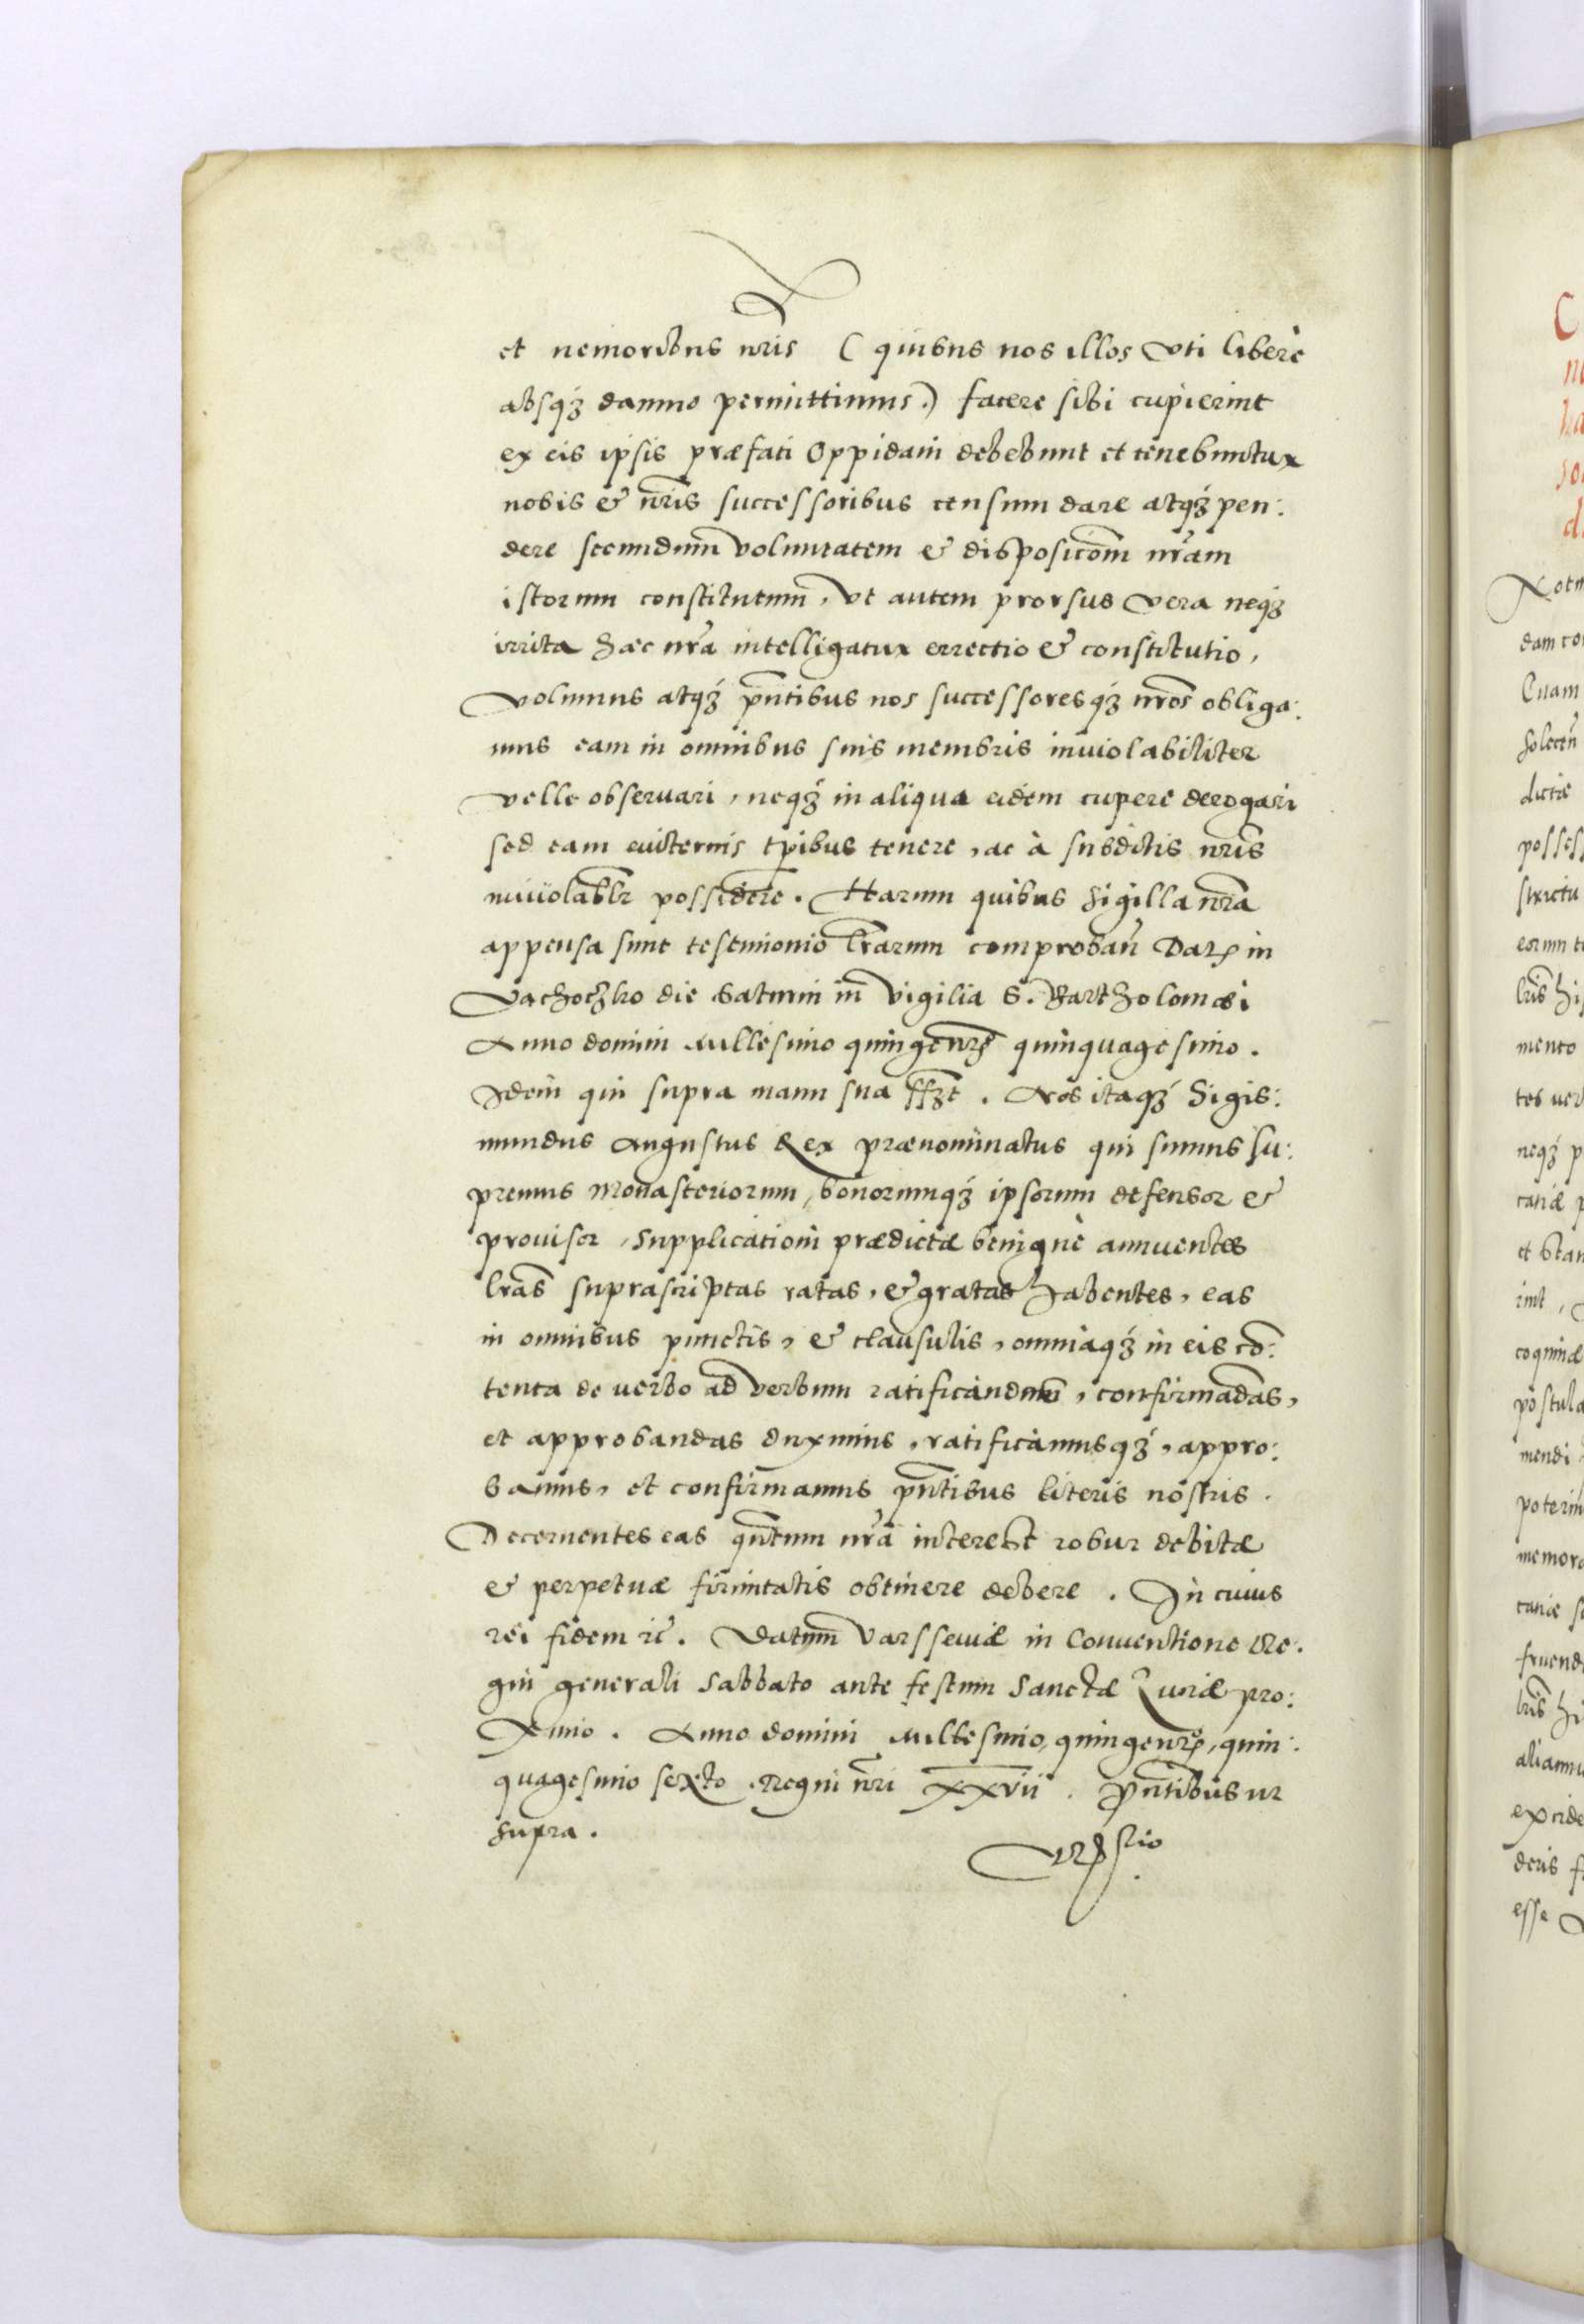 et nemoribus nr̃is ( quibus nos illos vti liberè
absqꝫ damno permittimus.) facere sibi cupierint
ex eis ipsis præfati Oppidani debebunt et tenebuntur
nobis & nr̃is successoribus censum dare atqꝫ pen:
dere secundum voluntatem & disposicõm nr̃am
istorum constitutum, Vt autem prorsus vera neqꝫ
irrita hæc nr̃a intelligatur errectio & constitutio,
Volumus atqꝫ pn̄tibus nos successoresqꝫ nr̃os obliga:
mus eam in omnibus suis membris inuiolabiliter
velle obseruari, neqꝫ in aliqua eidem cupere derogari
sed eam euiternis tp̃ibus tenere, ac à subditis nr̃is
inuiolabl̃r possidere. Harum quibus sigilla nr̃a
appensa sunt testimonio lr̃arum comproban̄ Datꝭ in
Vachoczko die Saturni in vigilia S. Bartholomæi
Anno domini Millesimo quingentꝭ quinquagesimo.
Idem qui supra manu sua ssꝫt. Nos itaqꝫ Sigis:
mundus Augustus Rex prænominatus qui sumus su:
premus Monasteriorum, bonorumqꝫ ipsorum defensor &
prouisor, supplicationi prædictæ benignè annuentes
lr̃as suprascriptas ratas, & gratas habentes, eas
in omnibus punctis, & clausulis, omniaqꝫ in eis cō:
tenta de verbo ad verbum ratificandum, confirmādas,
et approbandas duximus, ratificamusqꝫ, appro:
bamus, et confirmamus pn̄tibus literis nostris.
Decernentes eas qn̄tum nr̃a interest robur debitæ
& perpetuæ firmitatis obtinere debere. In cuius
rei fidem ꝛc̃. Datum Varsseuiæ in Conuentione Re:
gni generali Sabbato ante festum Sanctæ Luciæ pro:
ximo. Anno domini Millesimo, quingentꝭ, quin:
quagesimo sexto. Regni nr̃i XXVII. Pn̄tibus ut
supra.